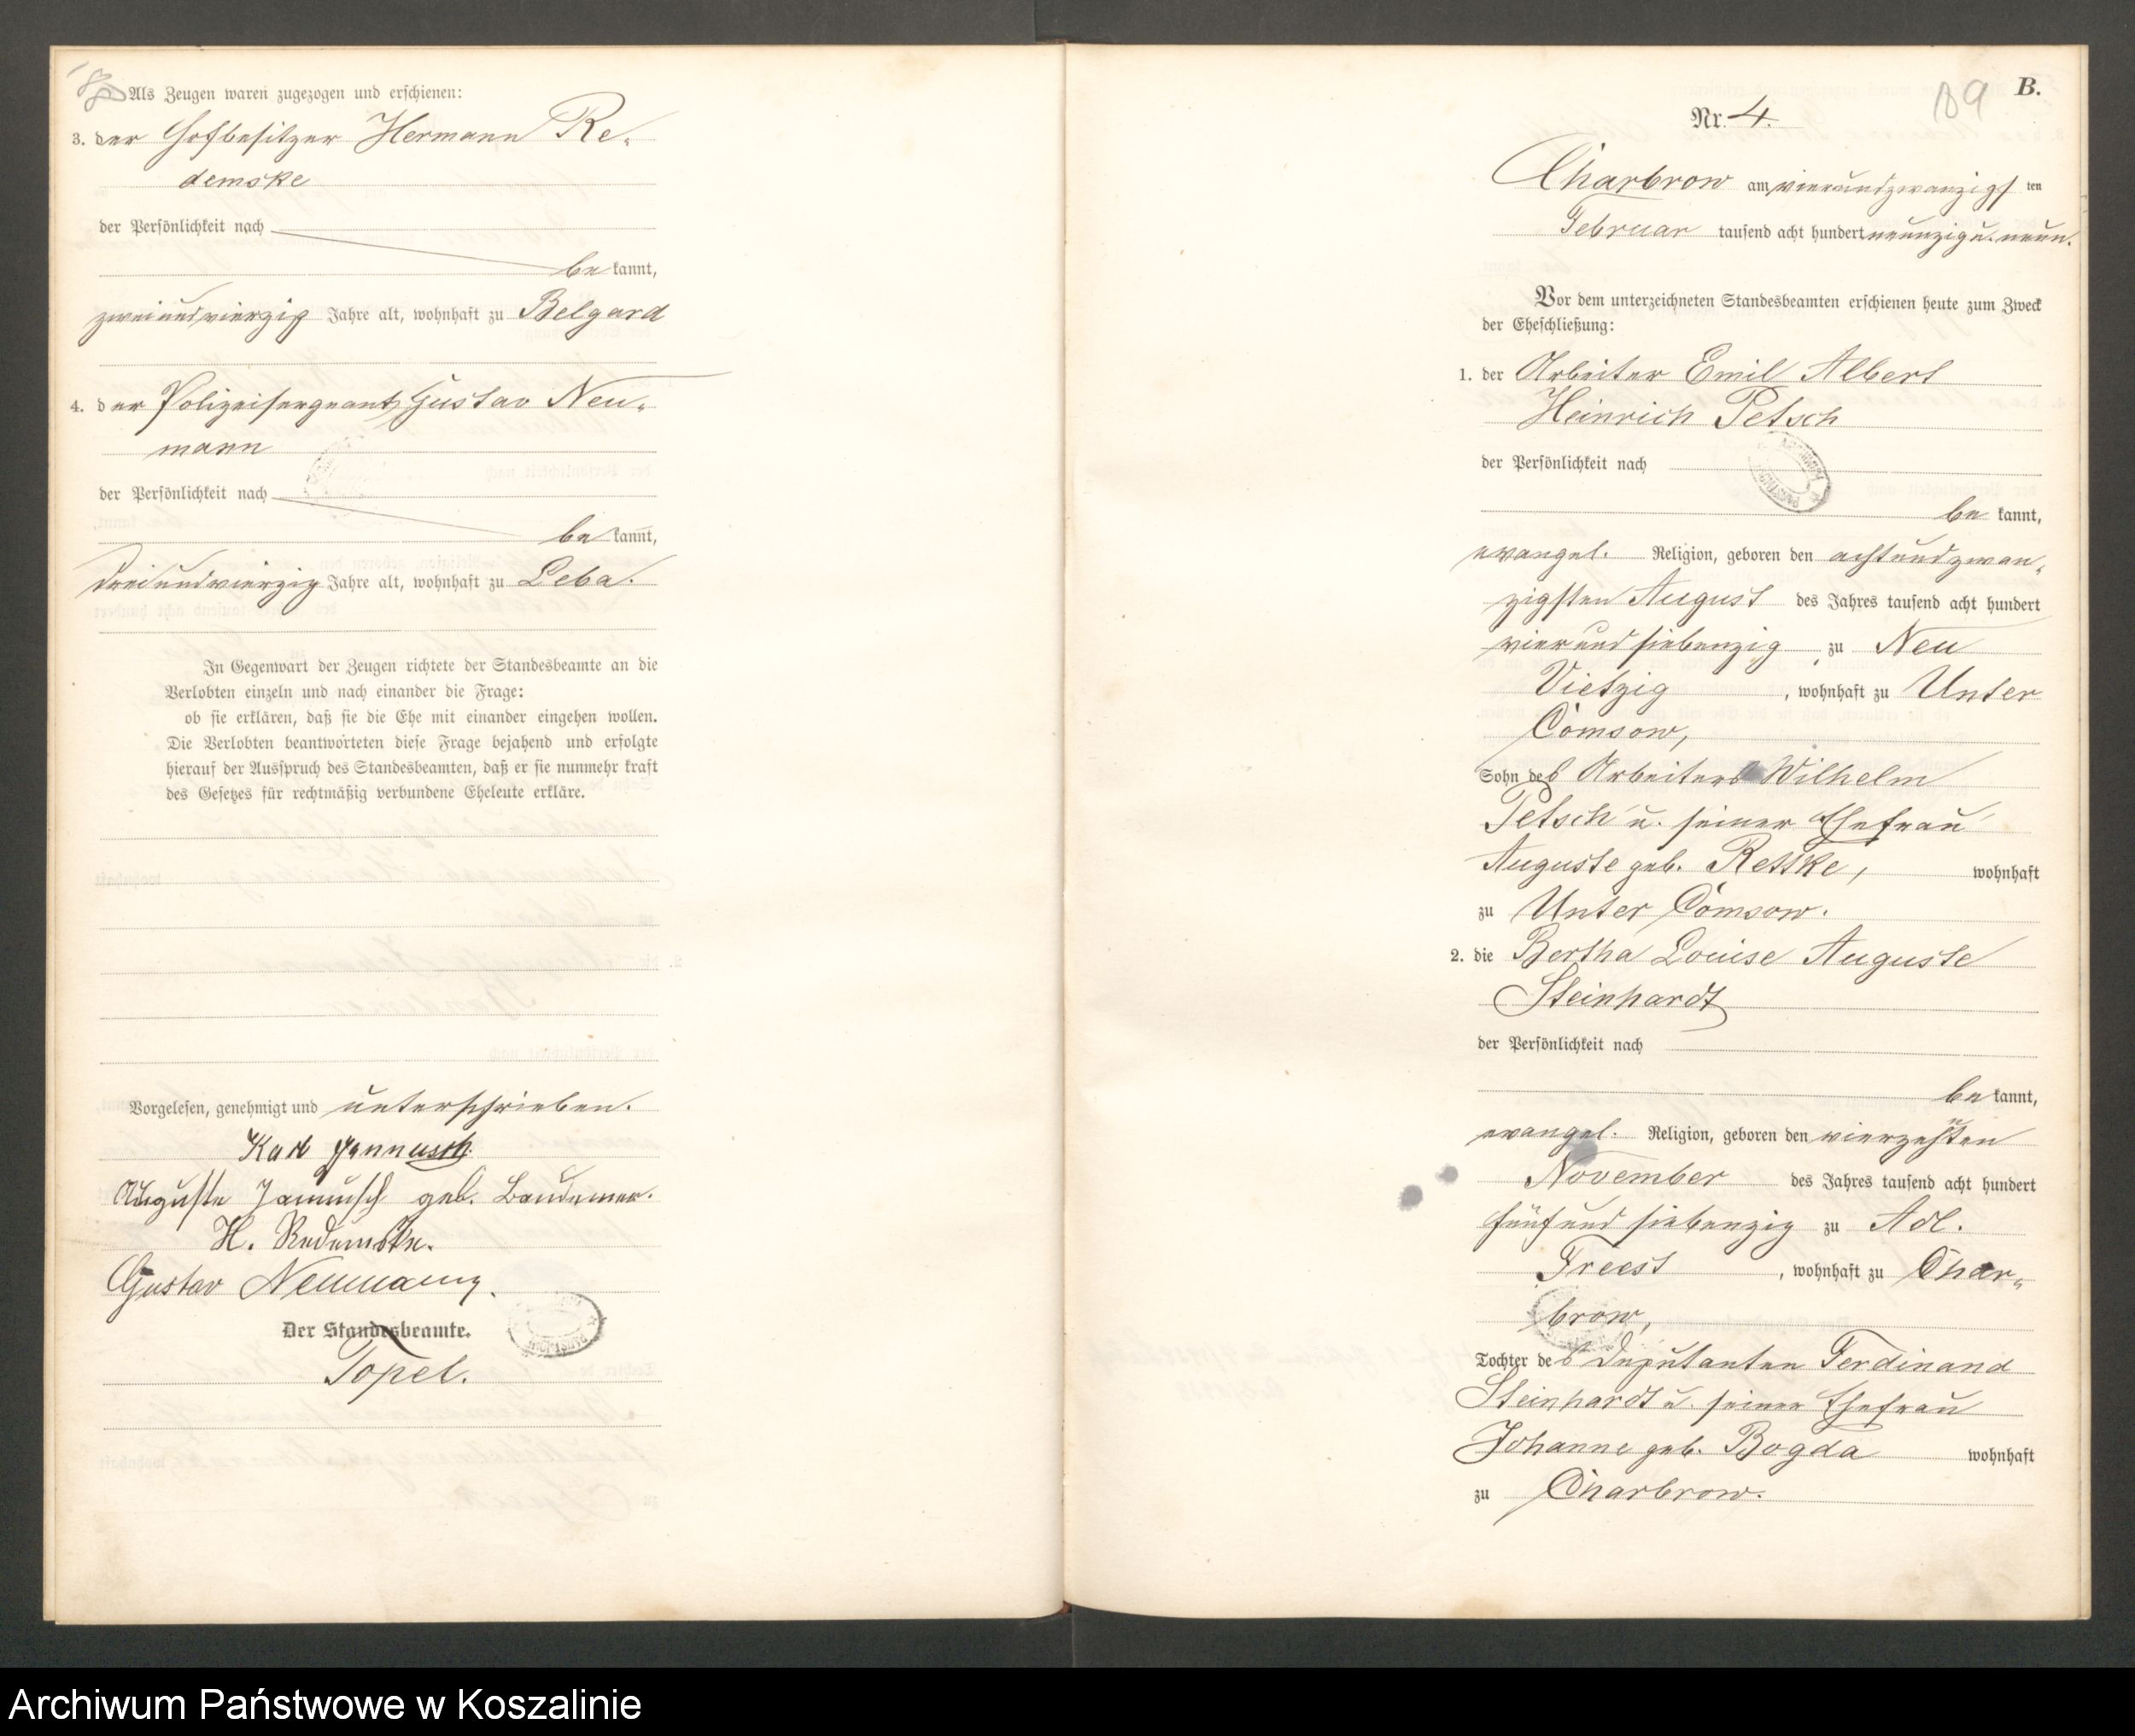 Als Zeugen waren zugezogen und erschienen:
3. der Hofbesitzer Hermann Re-
demske
der Persönlichkeit nach
be kannt,
zweiundvierzig Jahre alt, wohnhaft zu Belgard
4. der Polizeisergeant Gustav Neu-
mann
der Persönlichkeit nach
be kannt,
dreiundvierzig Jahre alt, wohnhaft zu Leba.
In Gegenwart der Zeugen richtete der Standesbeamte an die
Verlobten einzeln und nach einander die Frage:
ob sie erklären, daß sie die Ehe mit einander eingehen wollen.
Die Verlobten beantworteten diese Frage bejahend und erfolgte
hierauf der Ausspruch des Standesbeamten, daß er sie nunmehr kraft
des Gesetzes für rechtmäßig verbundene Eheleute erkläre.
Vorgelesen, genehmigt und unterschrieben.
Karl Jannusch.
Auguste Jannusch geb. Bandemer.
H. Redemske.
Gustav Neumann.
Der Standesbeamte.
Topel.
B.
189
Nr. 4.
Charbrow am vierundzwanzigsten
Februar tausend acht hundert neunzig u. neun.
Vor dem unterzeichneten Standesbeamten erschienen heute zum Zweck
der Eheschließung:
1. der Arbeiter Emil Albert
Heinrich Petsch
der Persönlichkeit nach
be kannt,
evangel. Religion, geboren den achtundzwan-
zigsten August des Jahres tausend acht hundert
vierundsiebenzig zu Neu
Vietzig, wohnhaft zu Unter
Comsow,
Sohn des Arbeiters Wilhelm
Petsch u. seiner Ehefrau
Auguste geb. Rettke, wohnhaft
zu Unter Comsow.
2. die Bertha Louise Auguste
Steinhardt
der Persönlichkeit nach
be kannt,
evangel. Religion, geboren den vierzehnten
November des Jahres tausend acht hundert
fünfundsiebenzig zu Adl.
Freest, wohnhaft zu Char-
brow,
Tochter des Deputanten Ferdinand
Steinhardt u. seiner Ehefrau
Johanne geb. Bogda wohnhaft
zu Charbrow.
Archiwum Państwowe w Koszalinie